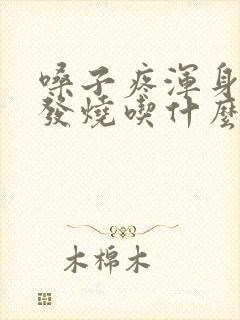 嗓子疼渾身
發燒喫什麼
木棉木